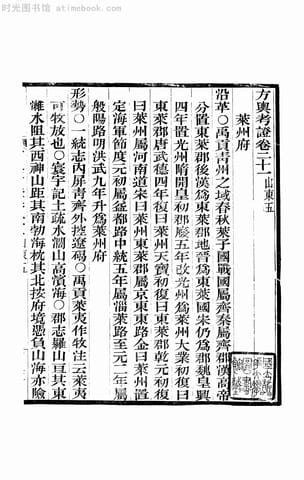 时光图书馆 - atimebook.com
方輿考證卷二十二 山東五
萊州府
沿革○禹貢青州之域春秋萊子國戰國屬齊秦屬齊郡漢高帝
分置東萊郡後漢為東萊郡地晉為東萊國宋仍為郡魏皇興
四年置光州隋開皇初郡廢五年改光州為萊州大業初復曰
東萊郡唐武德四年復曰萊州天寶初復曰東萊郡乾元初復
曰萊州屬河南道宋曰萊州東萊郡屬京東東路金曰萊州置
定海軍節度元初屬益都路中統五年屬淄萊路至元二年屬
般陽路明洪武九年升為萊州府
形勢○一統志內屏青齊外控遼碣○禹貢萊夷作牧注云萊夷
可牧放也○寰宇記土疏水濶山高濱海○郡志羣山亘其東
濰水阻其西神山距其南勃海枕其北按府境憑負山海亦險